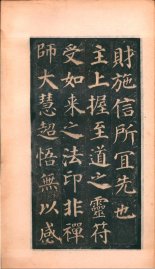 財施信所宜先也
主上握至道之靈符
受如来之法印非禪
師大慧超悟無以感